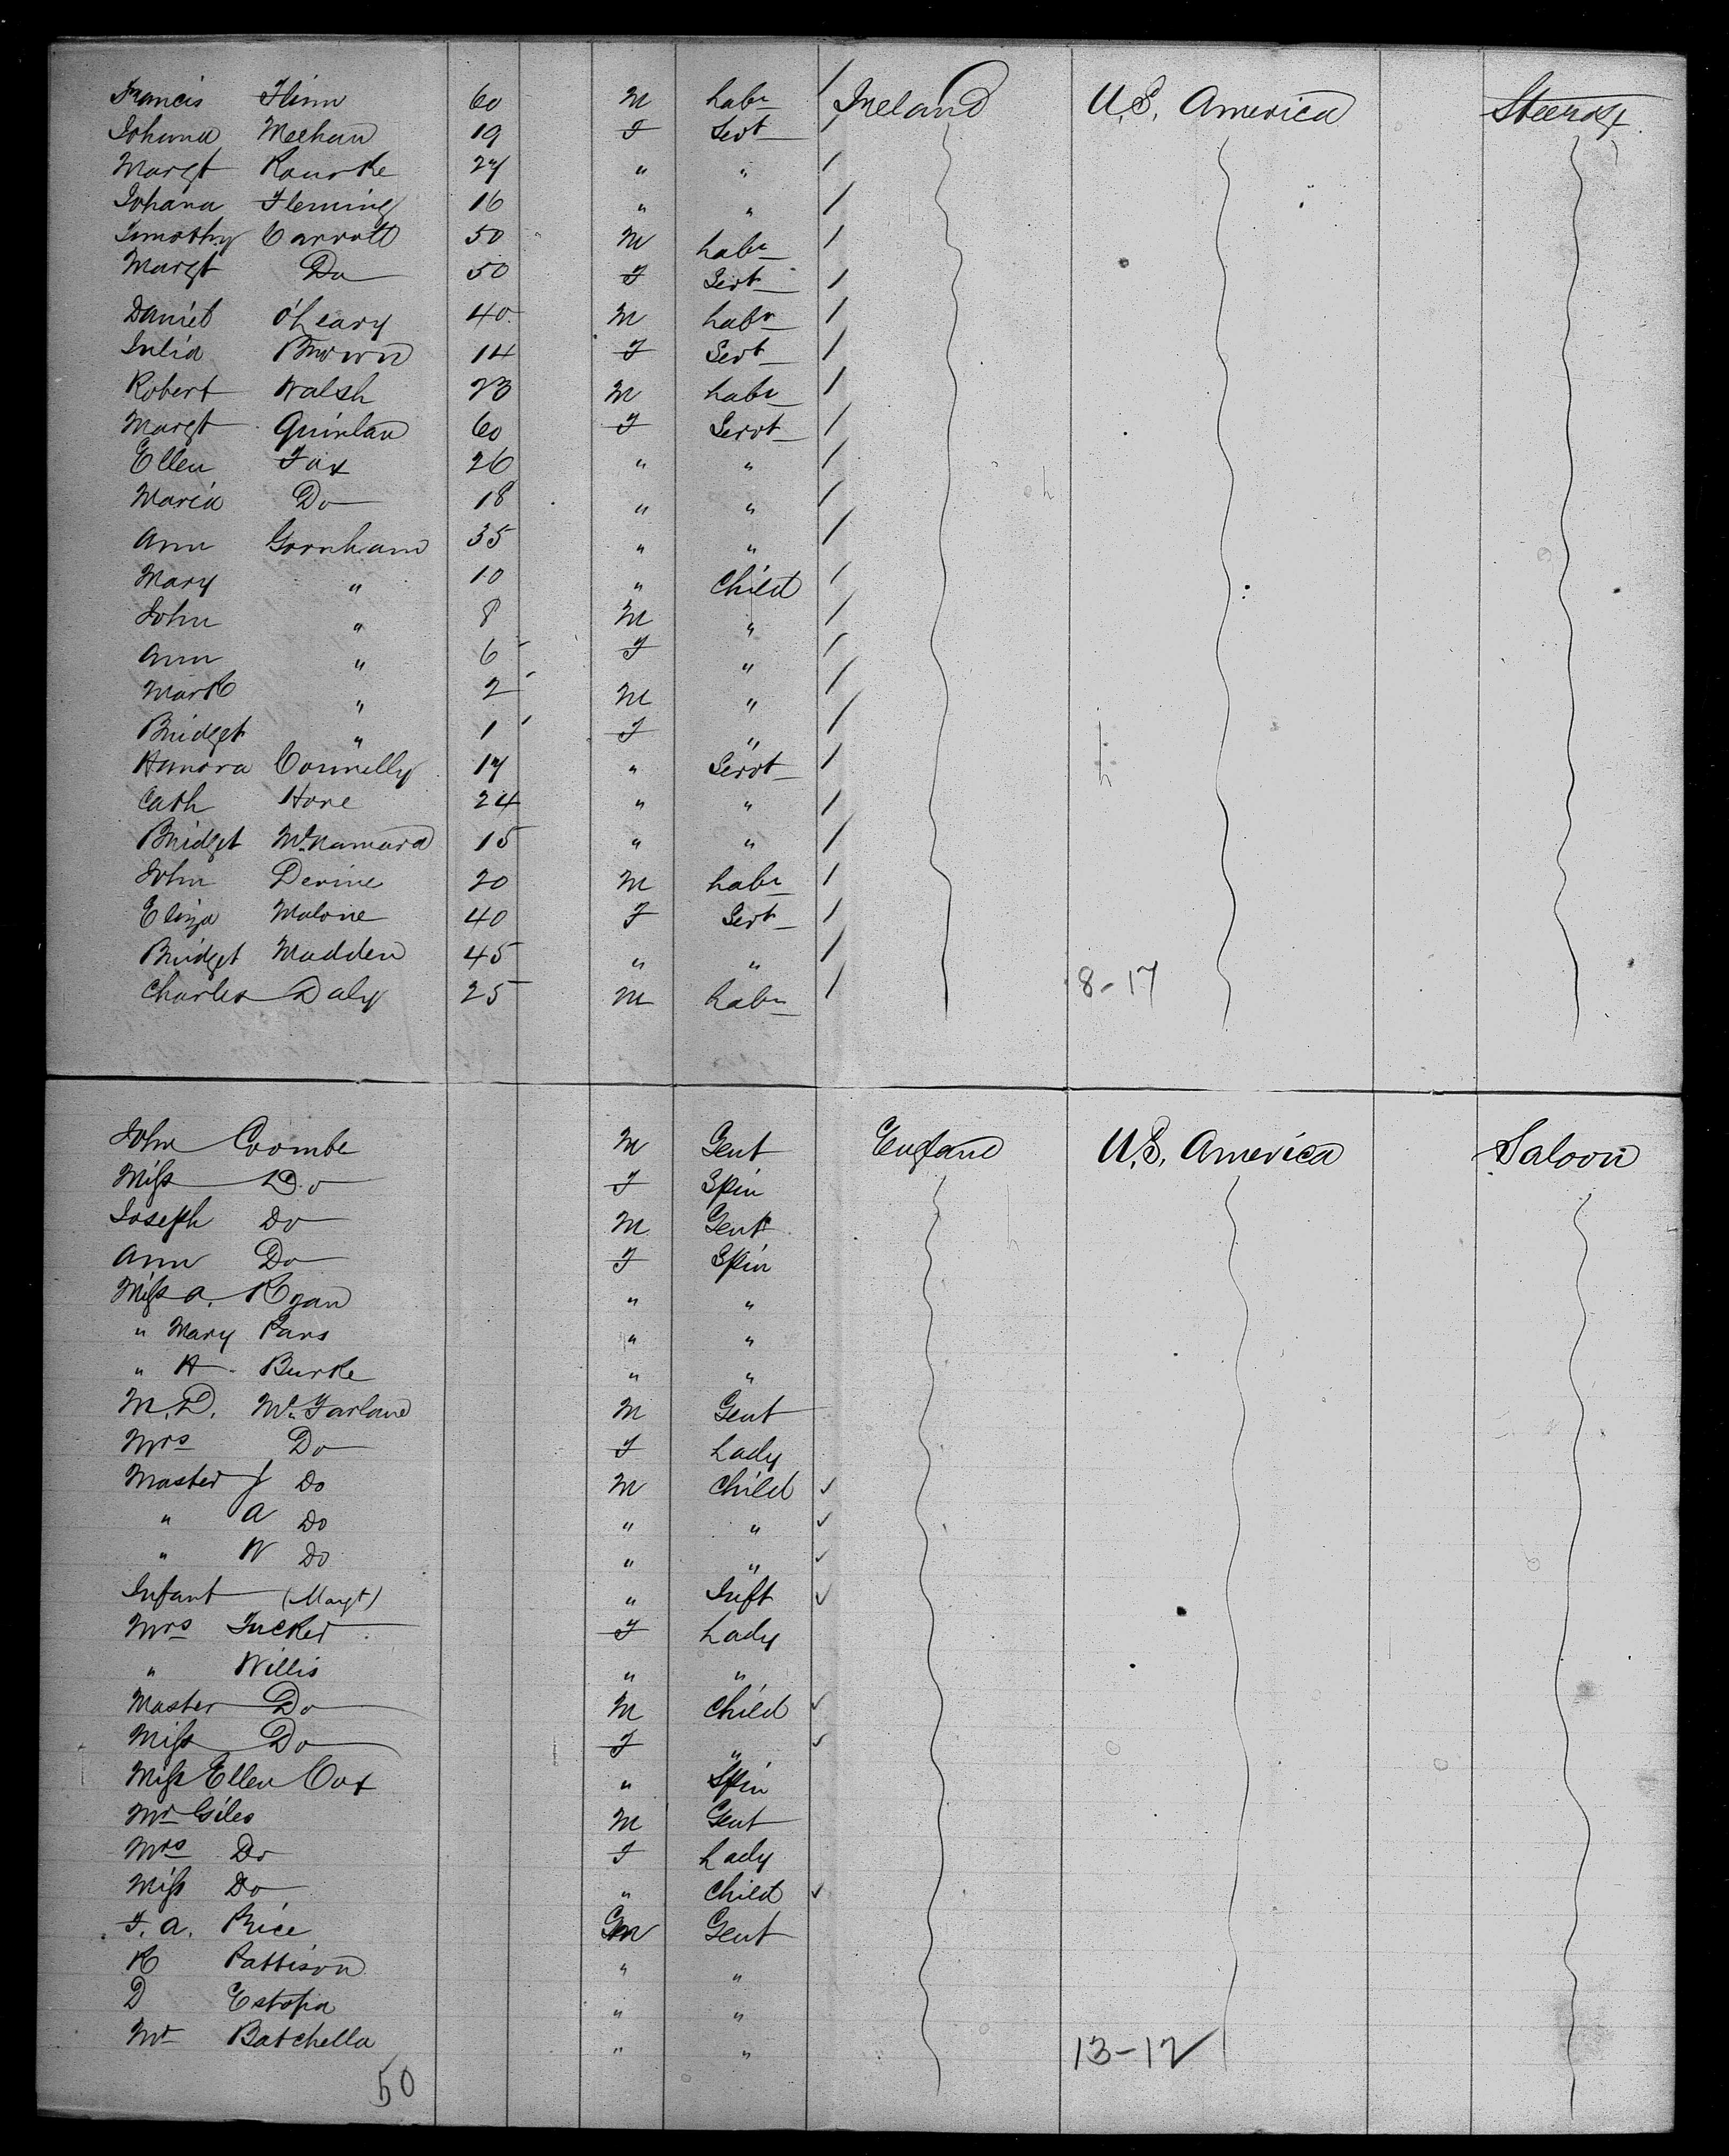 Francis Flinn 60 M Labr / Ireland U.S. America Steerage
Johana Meehan 19 F Sert /
Margt Rourke 27 " " /
Johana Fleming 16 " " /
Timothy Carroll 50 M Labr /
Margt Do 50 F Sert /
Daniel O'Leary 40 M Labr /
Julia Brown 14 F Sert /
Robert Walsh 23 M Labr /
Margt Quinlan 60 F Servt /
Ellen Fox 26 " " /
Maria Do 18 " " /
Ann Gornham 35 " " /
Mary " 10 " Child /
John " 8 M " /
Ann " 6 F " /
Mark " 2 M " /
Bridget " 1 F " /
Hanora Connelly 17 " Servt /
Cath Hore 24 " " /
Bridget McNamara 15 " " /
John Devine 20 M Labr /
Eliza Malone 40 F Sert /
Bridget Madden 45 " " /
Charles Daly 25 M Labr / 8-17
John Coombe M Gent England U.S. America Saloon
Miss Do F Spin
Joseph Do M Gent
Ann Do F Spin
Miss A. Ryan " "
" Mary Pars " "
" H. Burke " "
M.D. McFarland M Gent
Mrs Do F Lady
Master J Do M Child ✓
" A Do " " ✓
" W Do " " ✓
Infant (Margt) " Inft ✓
Mrs Tucker F Lady
" Willis " "
Master Do M Child ✓
Miss Do F " ✓
Miss Ellen Cox " Spin
Mr Giles M Gent
Mrs Do F Lady
Miss Do " Child ✓
F. A. Price M Gent
R Pattison " "
D Estopia " "
Mr Batchella " " 13-12
50